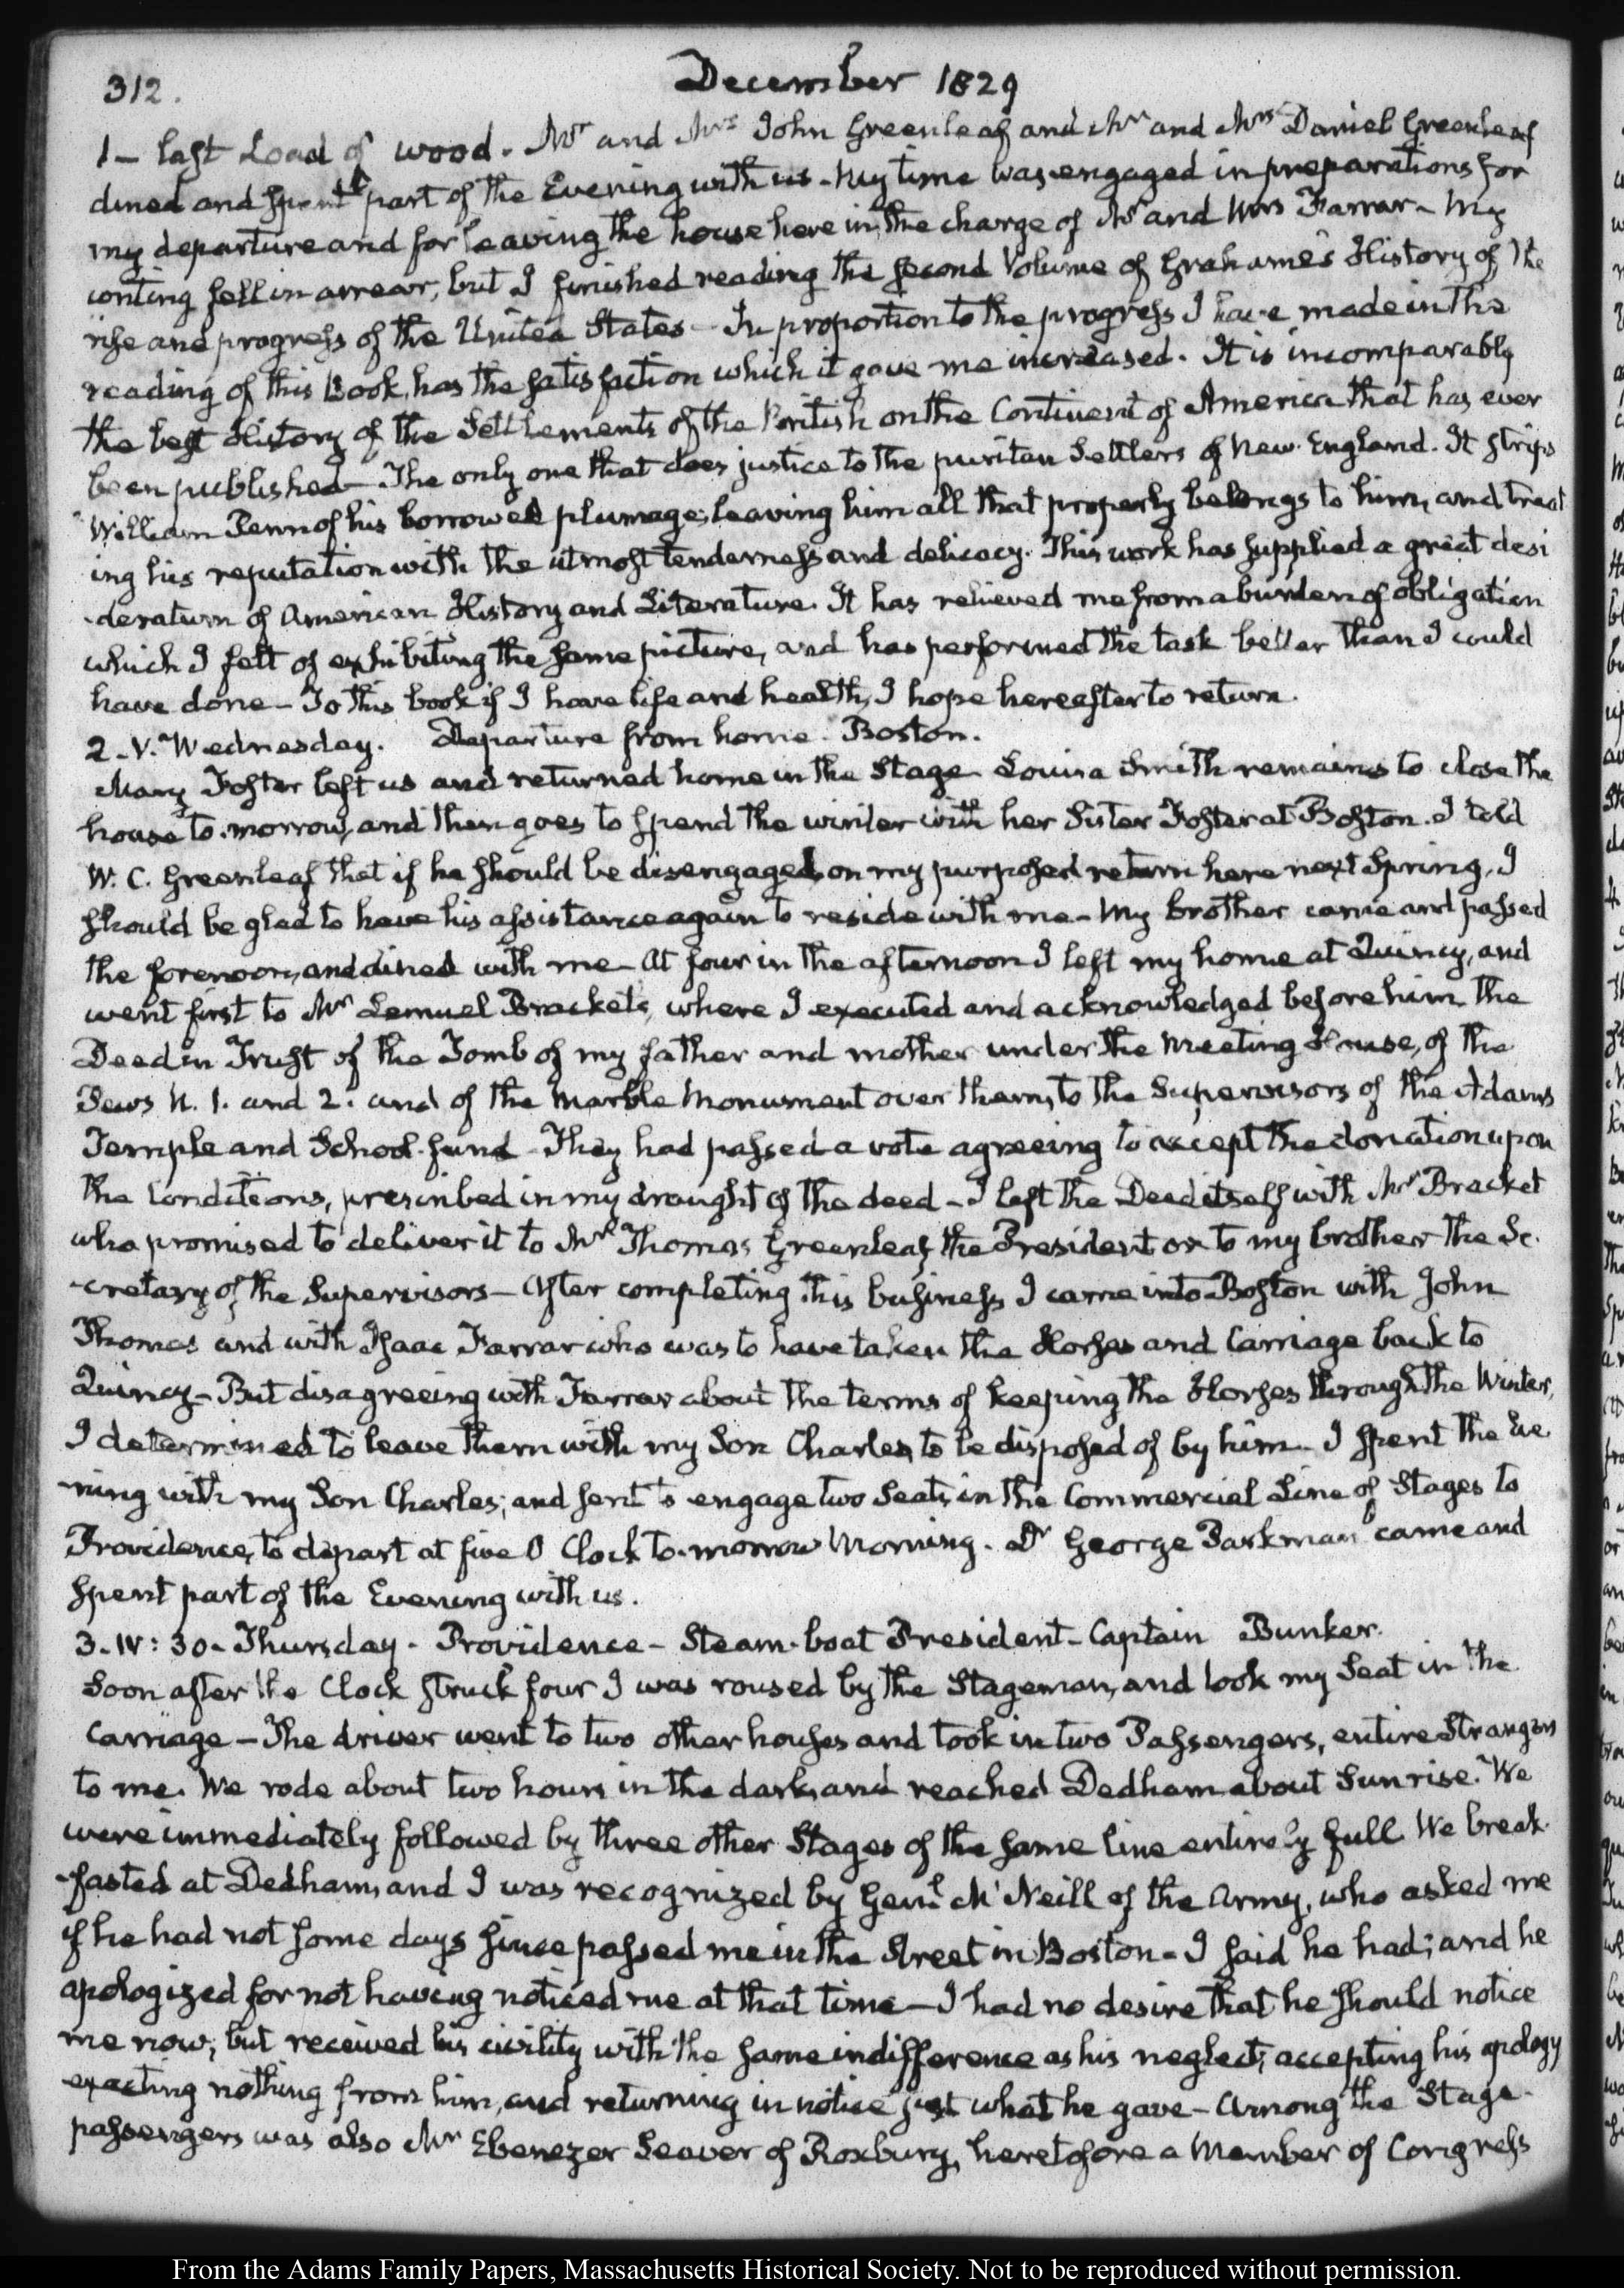 312.
December 1829
1 — last Load of wood. Mr and Mrs John Greenleaf and Mr and Mrs Daniel Greenleaf
dined and spent part of the Evening with us - My time was engaged in preparations for
my departure and for leaving the house here in the charge of Mr and Mrs Farrar - My
writing fell in arrear, but I finished reading the second Volume of Grahame's History of the
rise and progress of the United States - In proportion to the progress I have made in the
reading of this Book, has the satisfaction which it gave me increased. It is incomparably
the best History of the Settlements of the British on the Continent of America that has ever
been published - The only one that does justice to the puritan Settlers of New-England. It strips
William Penn of his borrowed plumage, leaving him all that properly belongs to him, and treat
ing his reputation with the utmost tenderness and delicacy. This work has supplied a great desi
-deratum of American History and Literature. It has relieved me from a burden of obligation
which I felt of exhibiting the same picture, and has performed the task better than I could
have done - To this book if I have life and health, I hope hereafter to return.
2. V. Wednesday. Departure from home. Boston.
Mary Foster left us and returned home in the Stage. Louisa Smith remains to close the
house to-morrow, and then goes to spend the winter with her Sister Foster at Boston. I told
W. C. Greenleaf that if he should be disengaged on my purposed return here next Spring, I
should be glad to have his assistance again to reside with me - My brother came and passed
the forenoon, and dined with me - At four in the afternoon I left my home at Quincy, and
went first to Mr Lemuel Brackets, where I executed and acknowledged before him the
Deed in Trust of the Tomb of my father and mother under the Meeting House, of the
Pews N. 1. and 2. and of the Marble Monument over them, to the Supervisors of the Adams
Temple and School fund - They had passed a vote agreeing to accept the donation upon
the Conditions, prescribed in my draught of the deed - I left the Deed itself with Mr Bracket
who promised to deliver it to Mr Thomas Greenleaf, the President or to my brother the Se-
-cretary of the Supervisors - After completing this business I came into Boston with John
Thomas and with Isaac Farrar who was to have taken the Horses and Carriage back to
Quincy - But disagreeing with Farrar about the terms of keeping the Horses through the Winter,
I determined to leave them with my Son Charles, to be disposed of by him. I spent the Eve
-ning with my Son Charles; and sent to engage two Seats in the Commercial Line of Stages to
Providence, to depart at five O Clock to-morrow Morning. Dr George Parkman came and
spent part of the Evening with us.
3. IV: 30. Thursday. Providence - Steam-boat President - Captain Bunker.
Soon after the Clock struck four I was roused by the Stageman, and took my Seat in the
Carriage - The driver went to two other houses and took in two Passengers, entire Strangers
to me. We rode about two hours in the dark, and reached Dedham about Sunrise. We
were immediately followed by three other Stages of the same line entirely full. We break-
-fasted at Dedham, and I was recognized by Genl McNeill of the Army, who asked me
if he had not some days since passed me in the Street in Boston - I said he had; and he
apologized for not having noticed me at that time - I had no desire that he should notice
me now; but received his civility with the same indifference as his neglect; accepting his apology
exacting nothing from him, and returning in notice just what he gave - Among the Stage-
passengers was also Mr Ebenezer Seaver of Roxbury, heretofore a Member of Congress
From the Adams Family Papers, Massachusetts Historical Society. Not to be reproduced without permission.